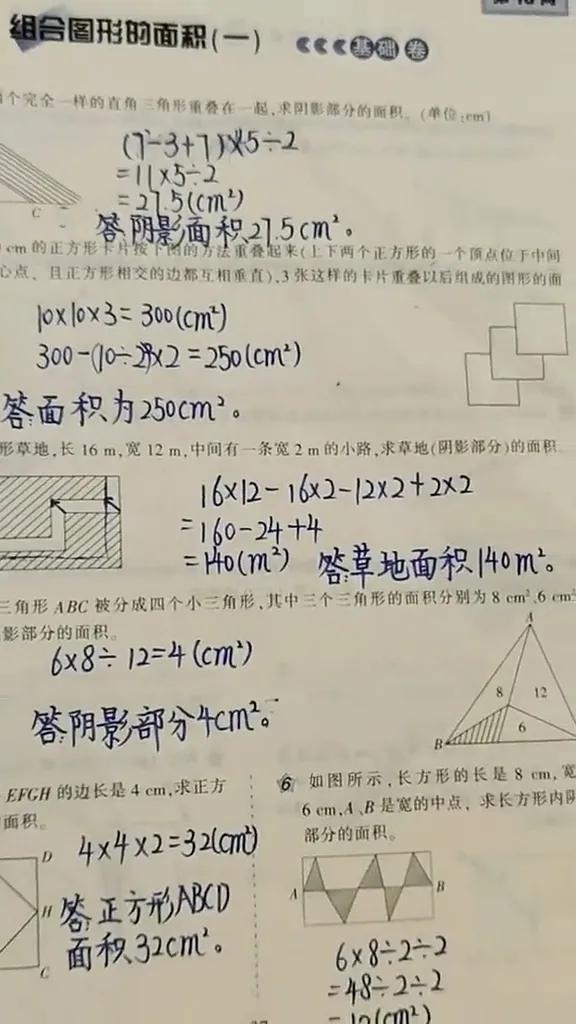 组合图形的面积(一) 基础卷
个完全一样的直角三角形重叠在一起,求阴影部分的面积。(单位:cm)
(7-3+7)×5÷2
=11×5÷2
=27.5(cm²)
C
答:阴影面积27.5cm²。
cm的正方形卡片按下图的方法重叠起来(上下两个正方形的一个顶点位于中间
心点、且正方形相交的边都互相垂直),3张这样的卡片重叠以后组成的图形的面
10×10×3=300(cm²)
300-(10÷2)²×2=250(cm²)
答:面积为250cm²。
形草地,长16 m,宽12 m,中间有一条宽2 m的小路,求草地(阴影部分)的面积
16×12-16×2-12×2+2×2
=160-24+4
=140(m²) 答:草地面积140m²。
三角形ABC被分成四个小三角形,其中三个三角形的面积分别为8 cm²、6 cm²
影部分的面积。
6×8÷12=4(cm²)
答:阴影部分4cm²。
A
8 12
6
B
EFGH的边长是4 cm,求正方
面积。
4×4×2=32(cm²)
D
H
C
答:正方形ABCD
面积32cm²。
6 如图所示,长方形的长是8 cm,宽
6 cm,A、B是宽的中点,求长方形内阴
部分的面积。
A B
6×8÷2÷2
=48÷2÷2
=12(cm²)